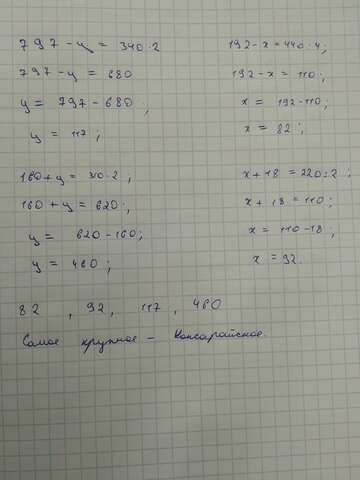 797 - y = 340·2
797 - y = 680
y = 797 - 680;
y = 117;
192 - x = 440:4;
192 - x = 110;
x = 192-110;
x = 82;
160 + y = 310·2;
160 + y = 620;
y = 620-160;
y = 460;
x + 18 = 220:2;
x + 18 = 110;
x = 110-18;
x = 92.
82, 92, 117, 460
Самое крупное - Капсарайское.